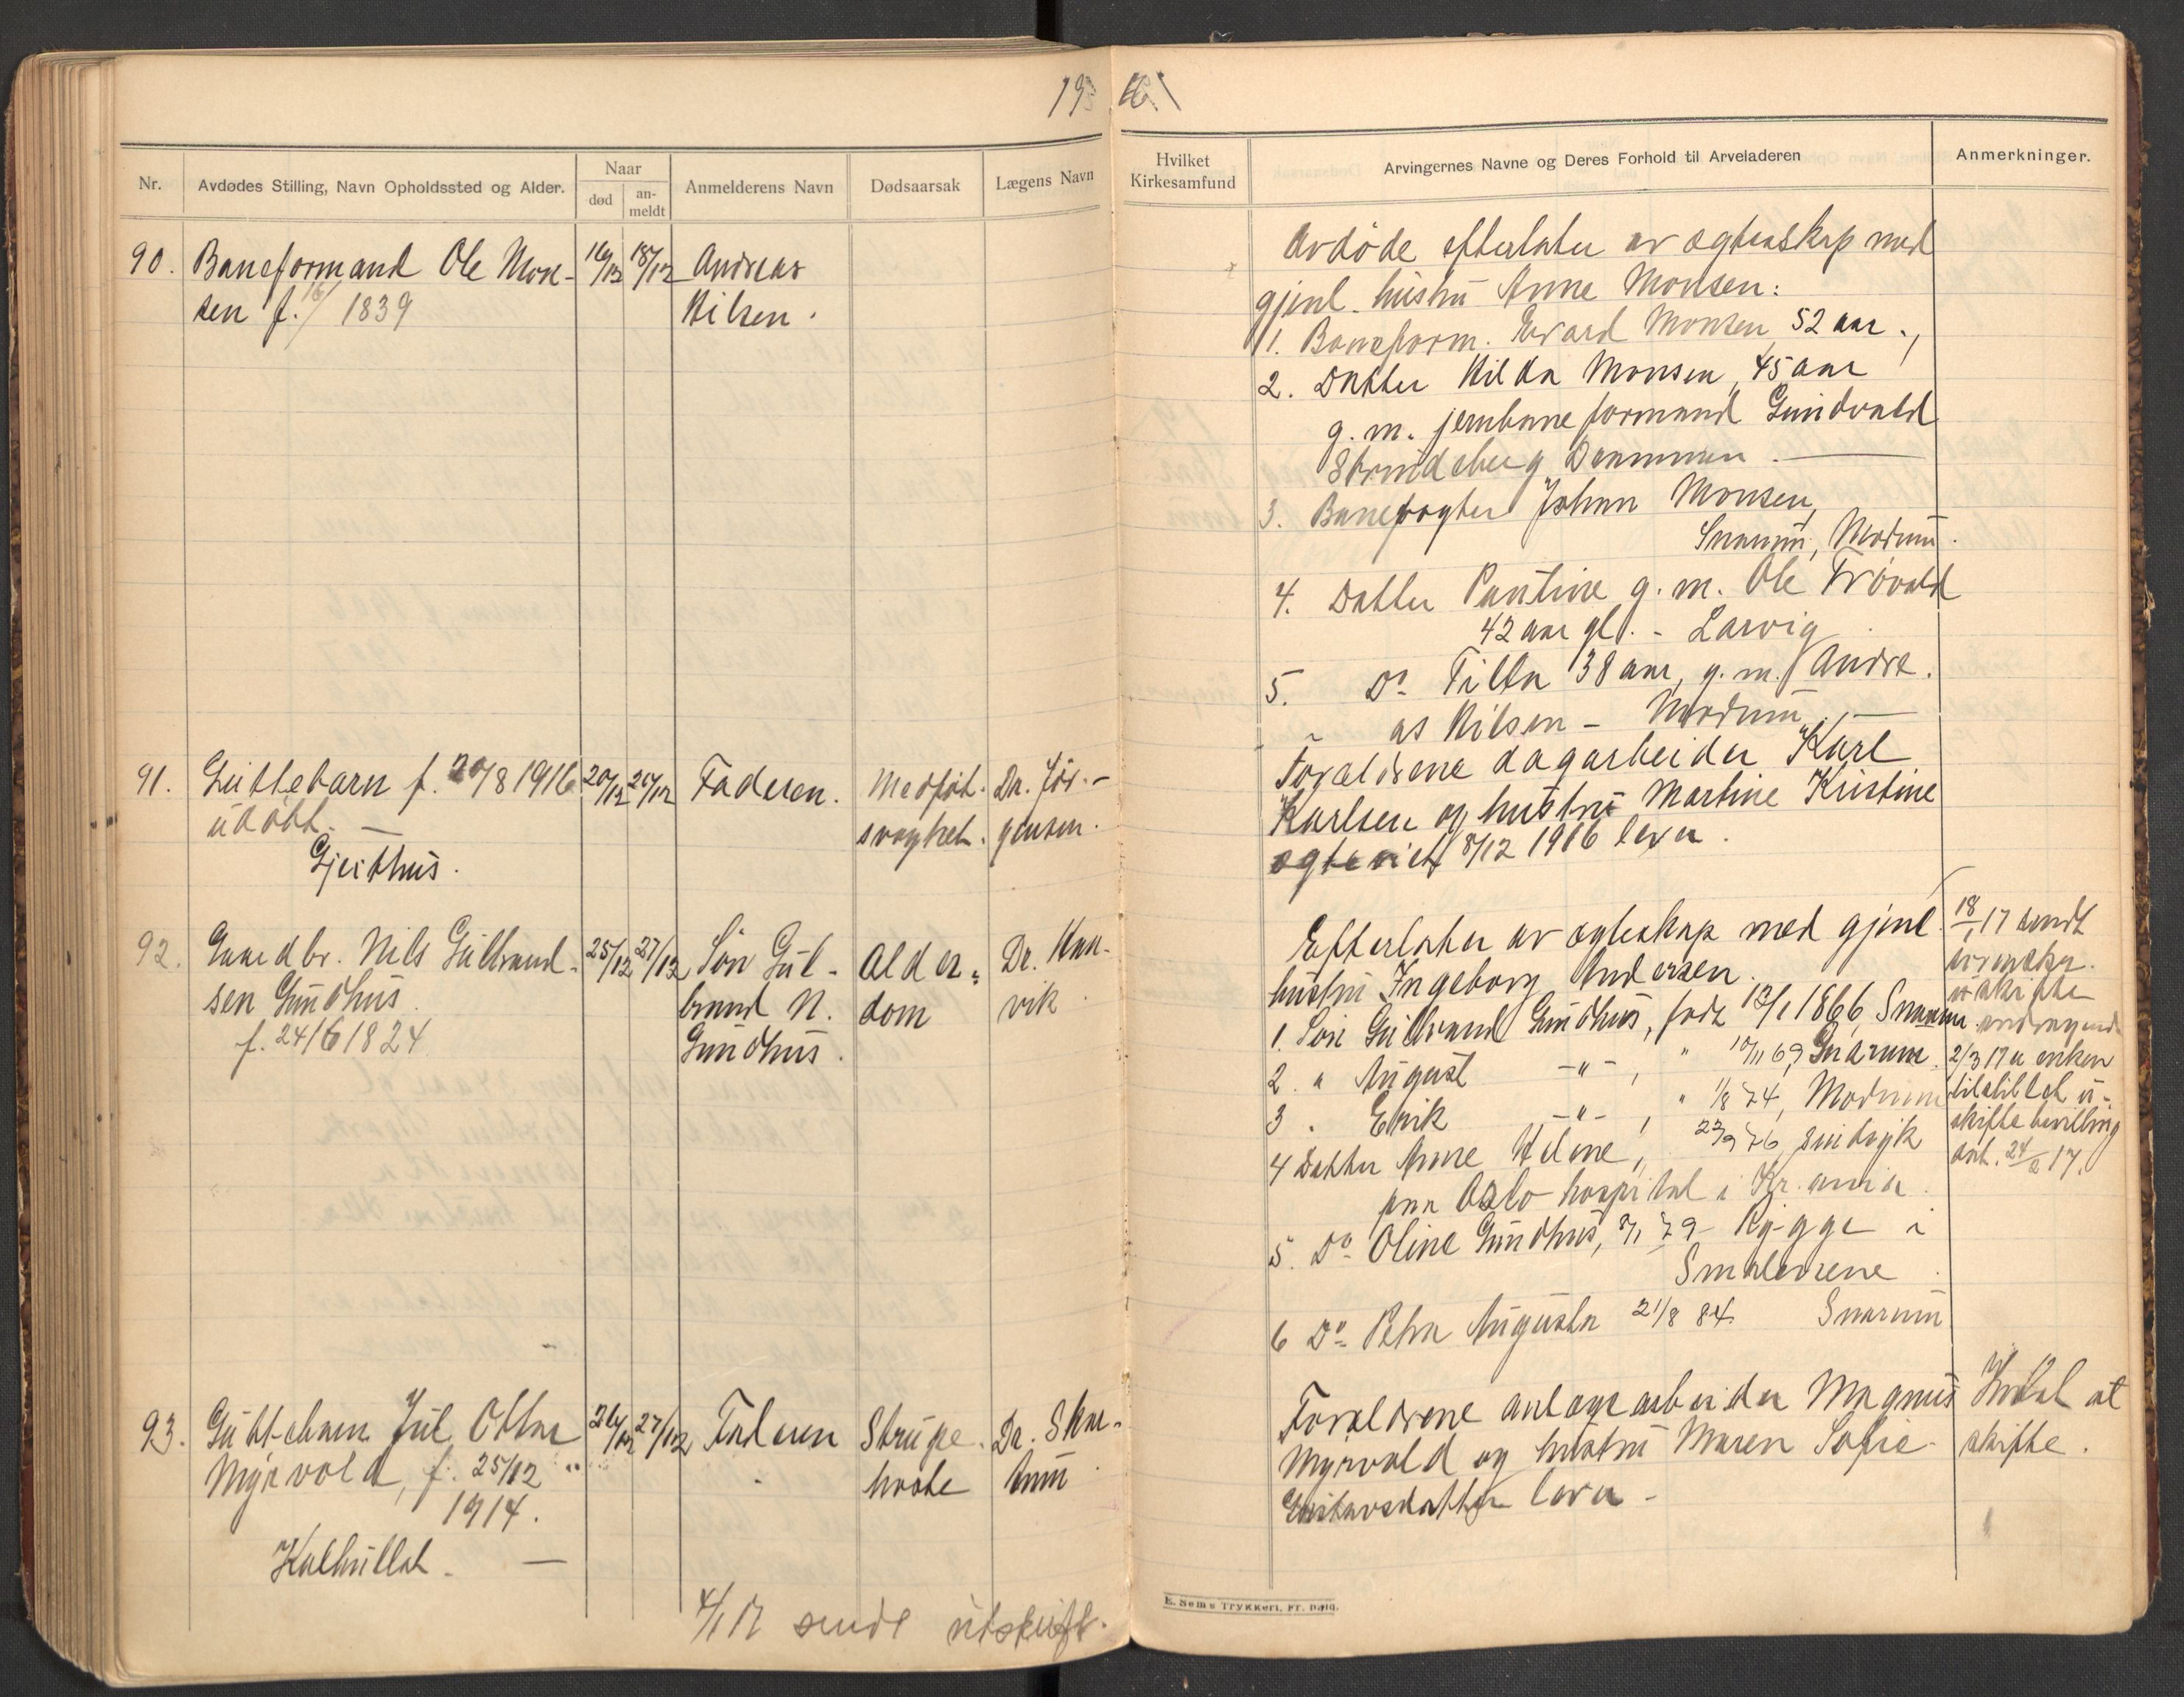 19 16
Nr.
Avdødes Stilling, Navn Opholdssted og Alder.
Naar
død
an-
meldt
Anmelderens Navn
Dødsaarsak
Lægens Navn
Hvilket
Kirkesamfund
Arvingernes Navne og Deres Forhold til Arveladeren
Anmerkninger.
90. Baneformand Ole Mon-
sen f. 16/ 1839
16/12 18/12
Andreas
Nilsen.
Avdøde efterlater av ægteskap med
gjenl. hustru Anne Monsen:
1. Baneform. Evard Monsen, 52 aar.,
2. Datter Hilda Monsen, 45 aar
g. m. jernbaneformand Gundvald
Strindsberg Drammen.
3. Banevogter Johan Monsen,
Snarum, Modum.
4. Datter Pauline g. m. Ole Trövald
42 aar gl. - Larvig
5. Do Tilla 38 aar, g. m. Andre.
as Nilsen - Modum. —
91. Guttebarn f. 20/8 1916
udöbt. —
Gjeithus.
20/12 20/12
Faderen.
Medföt.
svaghet.
Dr. Jör-
gensen.
Forældrene dagarbeider Karl
Karlsen og hustru Martine Kristine
ægteviet 8/12 1916 lever.
92. Gaardbr. Nils Gulbrand-
sen Gundhus
f. 24/6 1824
25/12 27/12
Sön Gul-
brand N.
Gundhus.
Alder-
dom
Dr. Knar-
vik
Efterlater av ægteskap med gjenl.
hustru Ingeborg Andersen.
1. Sön Gulbrand Gundhus, födt 13/1 1866, Snarum
2. " August -"-, " 10/11 69, Snarum.
3. Erik -"-, " 1/8 74, Modum
4 Datter Anne Helene, 22/9 76 sindsyk
paa Oslo hospital i Kr.ania.
5. Do Oline Gundhus, 3/1 79 Rygge i
Smalenene
6 Do Petra Augusta 21/8 84. Snarum
18/1 17 sendt
uskifte
andragende
2/3 17 er enken
tilstillet u-
skiftebevilling
dat. 24/2 17.
93. Guttebarn Jul Ottar
Myrvold, f. 25/12
1914.
Kalhullet. —
26/12 27/12
Faderen
Strupe.
hoste
Dr. Skar-
Forældrene anlægsarbeider Magnus
Myrvold og hustru Maren Sofie
Gustavsdatter lever -
Intet at
skifte.
4/1 17 sendt utskrift.
E. Sems Trykkeri, Fr. hald.